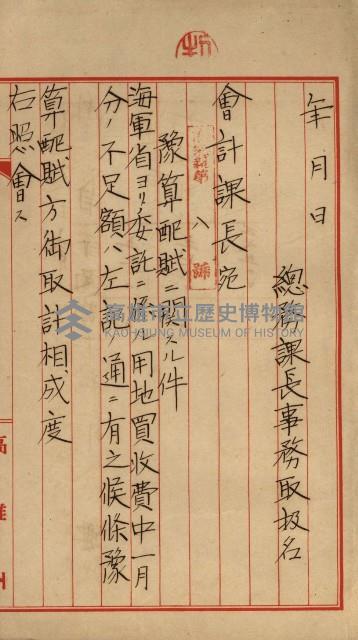 年月日
總務課長事務取扱名
會計課長宛
八 號
豫算配賦ニ関スル件
海軍省ヨリ委託ニ係ル用地買收費中一月
分ノ不足額ハ左記ノ通ニ有之候條豫
算配賦方御取計相成度
右照會ス
高雄州
高雄市立歷史博物館
KAOHSIUNG MUSEUM OF HISTORY